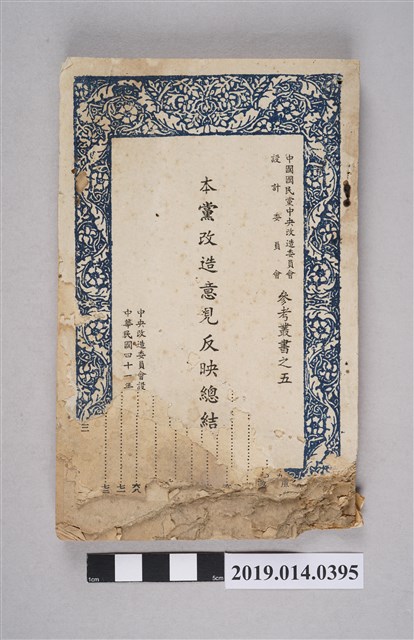 中國國民黨中央改造委員會
設計委員會
參考叢書之五
本黨改造意見反映總結
中央改造委員會設
中華民國四十一年
六八
七一
七三
三
1cm
5cm
2019.014.0395